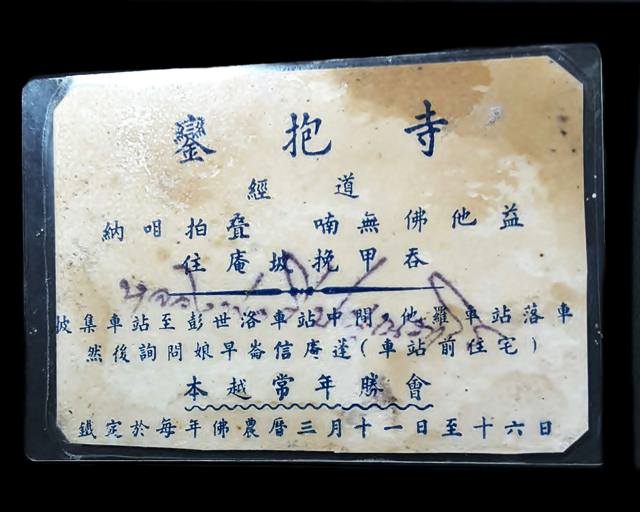 鑾抱寺
經道
納咱拍叠 喃無佛他益
住庵坡挽甲吞
披集車站至彭世洛車站中間,他羅車站落車
然後詢問娘早崙信庵蓬(車站前住宅)
本越常年勝會
鐵定於每年佛農暦三月十一日至十六日